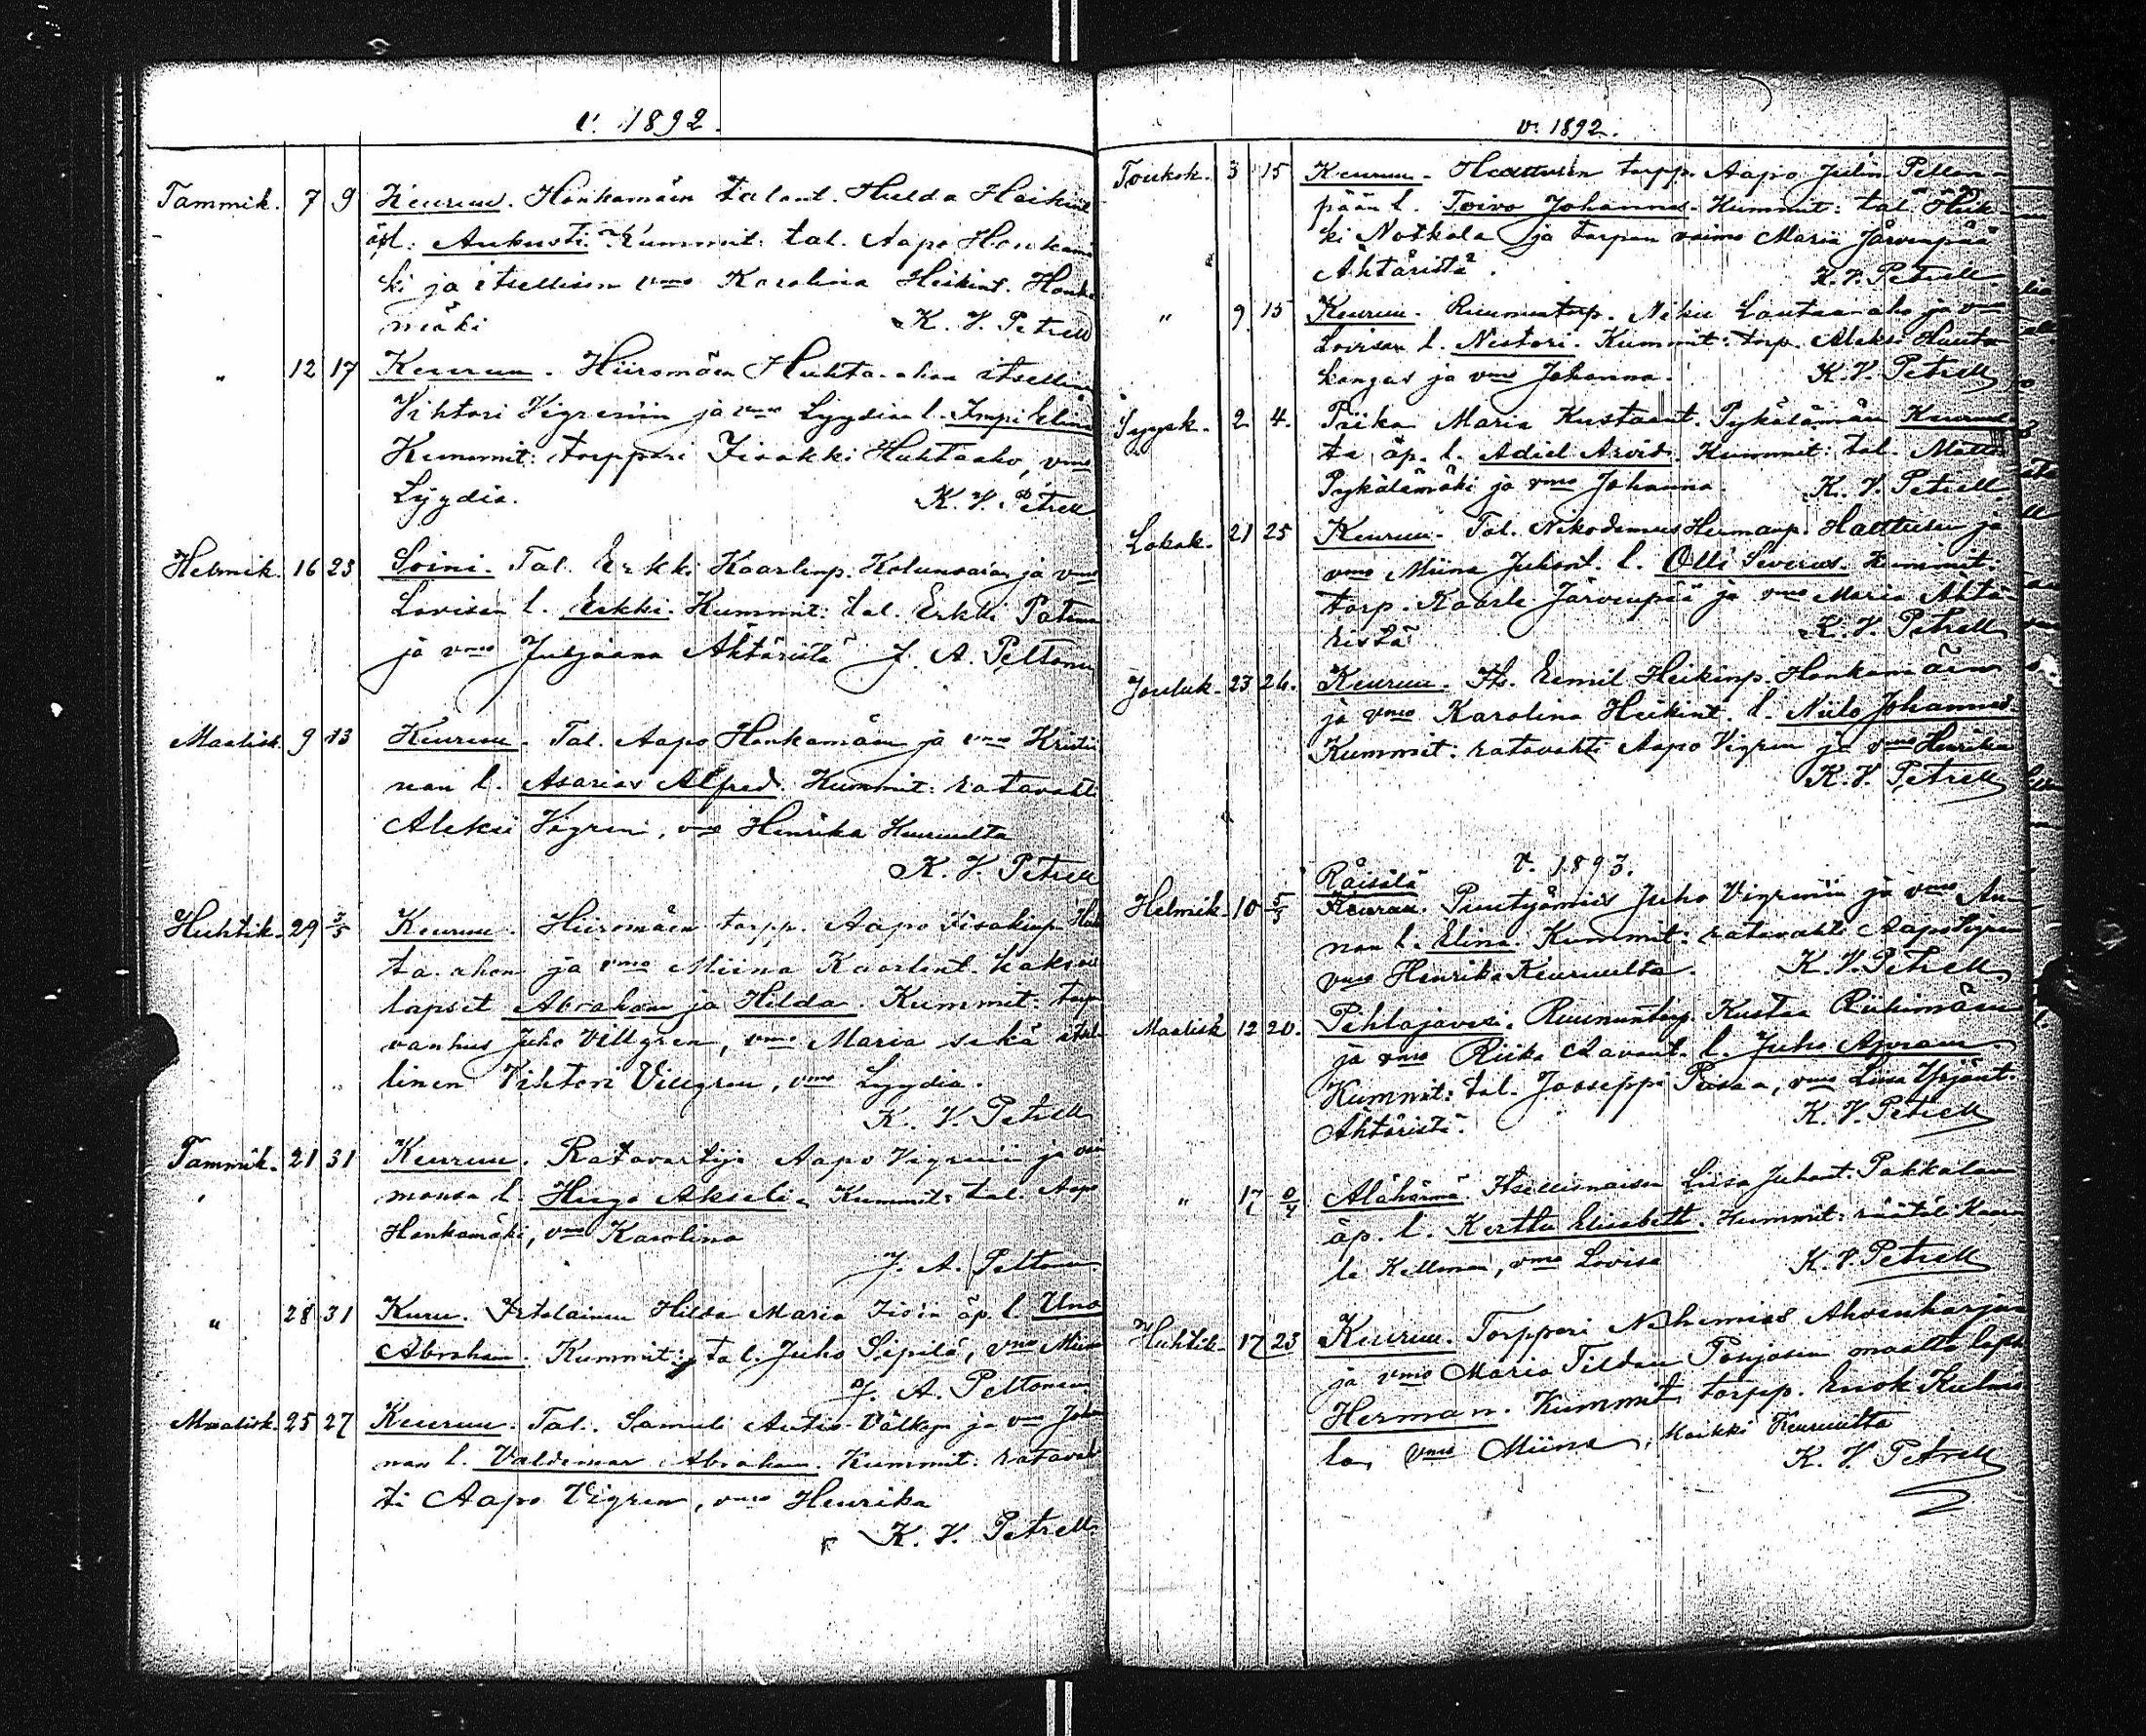 v. 1892.
Tammik. 7 9 Keuruu. Honkamäen talont. Hulda Heikint
äpl: Aukusti. Kummit: tal. Aapo Honkamä
ki ja itsellisen vmo Karolina Heikint. Honka
mäki K. V. Petrell
" 12 17 Keuruu. Hiiromäen Huhta-ahon itsellin
Vihtori Vigrenin ja vmo Lyydian l. Impi Elina
Kummit: torppari Iisakki Huhtaaho, vmo
Lyydia. K. V. Petrell
Helmik. 16 23 Soini. Tal. Erkki Kaarlenp. Kolunsarjan ja vmo
Lovisan l. Erkki. Kummit: tal. Erkki
ja vmo Juljaana Ähtäristä J. A. Peltonen
Maalisk. 9 13 Keuruu. Tal. Aapo Honkamäen ja vmo Kristii
nan l. Asarias Alfred. Kummit: ratavahti
Aleksi Vigren, vmo Henrika Keuruulta
K. V. Petrell
Huhtik. 29 3/5 Keuruu. Hiiromäen torpp. Aapo Iisakinp. Huh
ta-ahon ja vmo Miina Kaarlent. kaksois
lapset Abraham ja Hilda. Kummit: torp
vanhus Juho Villgren, vmo Maria sekä itsel
linen Vihtori Villgren, vmo Lyydia.
K. V. Petrell
Tammik. 21 31 Keuruu. Ratavartija Aapo Vigrenin ja vai
monsa l. Hugo Akseli. Kummit: tal. Aapo
Honkamäki, vmo Karolina
J. A. Peltonen.
" 28 31 Kuru. Irtolainen Hilda Maria äp. l. Uno
Abraham. Kummit: tal. Juho Sipilä, vmo Miina
J. A. Peltonen.
Maalisk. 25 27 Keuruu. Tal. Samuli ja vmo Johan
nan l. Valdemar Abraham. Kummit: ratavah
ti Aapo Vigren, vmo Henrika
K. V. Petrell
v. 1892.
Toukok. 3 15 Keuruu. Hautusen torpp. Aapo Julin Pellon-
pään l. Toivo Johannes. Kummit: tal. Heik-
ki Notkola ja torpan vaimo Maria Järvenpää
Ähtäristä. K. V. Petrell
" 9 15 Keuruu. Ruununtorp. Lautaahon ja vmo
Lovisan l. Nestori. Kummit: torp. Aleksi Hauta
kangas ja vmo Johanna. K. V. Petrell
Syysk. 2 4. Piika Maria Kustaant. Pykälämäen Keuruul
ta äp. l. Adiel Arvid. Kummit: tal. Matti
Pykälämäki ja vmo Johanna. K. V. Petrell
Lokak. 21 25 Keuruu. Tal. Nikodemus Hermanp. Hautusen ja
vmo Miina Juhont. l. Olli Severus. Kummit.
torp. Kaarle Järvenpää ja vmo Maria Ähtä
ristä K. V. Petrell
Jouluk. 23 26. Keuruu. Its. Eemil Heikinp. Honkamäen
ja vmo Karolina Heikint. l. Niilo Johannes.
Kummit: ratavahti Aapo Vigren ja vmo Henrika
K. V. Petrell
v. 1893.
Räisälä
Helmik. 10 5/3 Keuruu. Puutyömies Juho Vigrenin ja vmo An-
nan l. Elina. Kummit: ratavahti Aapo Vigren
vmo Henrika Keuruulta. K. V. Petrell
Maalisk 12 20. Pihlajavesi. Ruununtorp. Kustaa Riihimäen
ja vmo Riika l. Juho Apram.
Kummit: tal. Jooseppi vmo Liisa Yrjönt.
Ähtäristä. K. V. Petrell
" 17 Alahärmä. Itsellisnaisen Liisa Juhont. Pakkalan
äp. l. Kerttu Elisabett. Kummit: räätäli Kaar
le Kellman, vmo Lovisa K. V. Petrell
Huhtik. 17 23 Keuruu. Torppari Nehemias Ahvenharjun
ja vmo Maria Tildan Pohjosen maalta laps
Herman. Kummit, torpp. Enok Kulma
la, vmo Miina, kaikki Keuruulta
K. V. Petrell